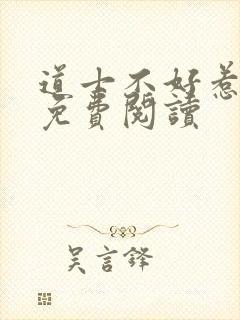 道士不好惹
免費閱讀
吳言鋒